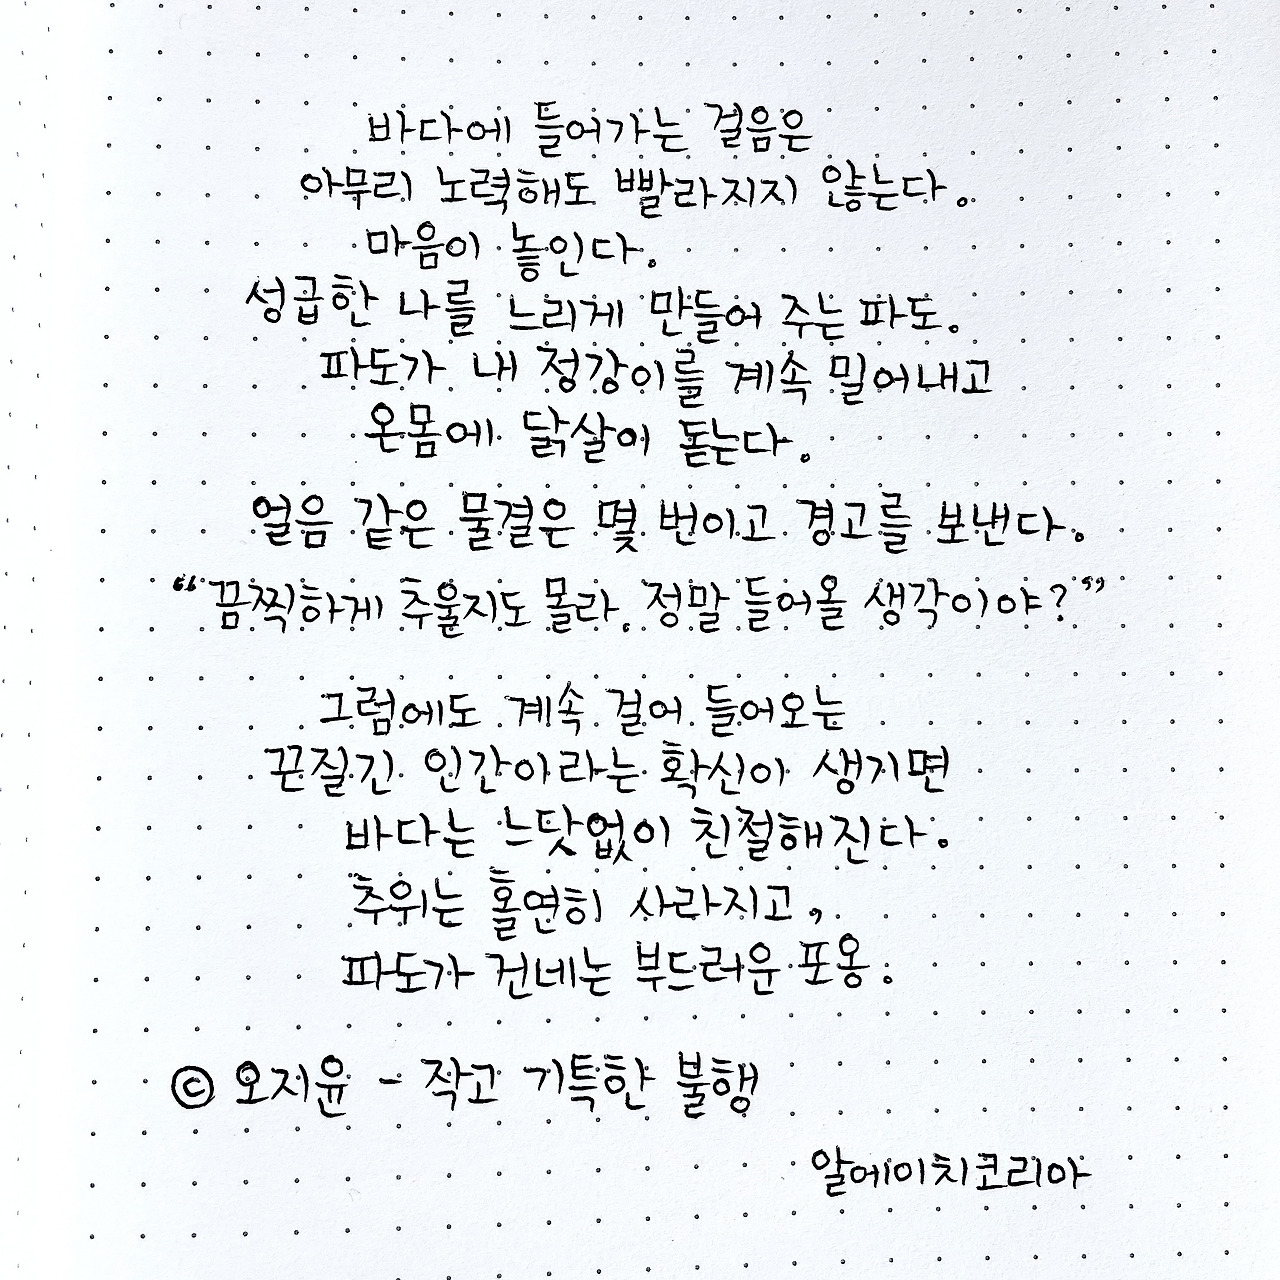 바다에 들어가는 걸음은
아무리 노력해도 빨라지지 않는다.
마음이 놓인다.
성급한 나를 느리게 만들어 주는 파도.
파도가 내 정강이를 계속 밀어내고
온몸에 닭살이 돋는다.
얼음 같은 물결은 몇 번이고 경고를 보낸다.
“끔찍하게 추울지도 몰라. 정말 들어올 생각이야?”
그럼에도 계속 걸어 들어오는
끈질긴 인간이라는 확신이 생기면
바다는 느닷없이 친절해진다.
추위는 홀연히 사라지고,
파도가 건네는 부드러운 포옹.
© 오지윤 - 작고 기특한 불행
알에이치코리아